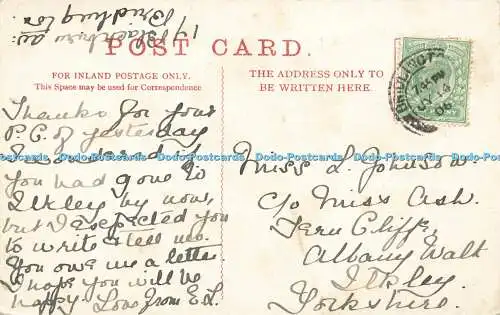 17 Blackburn av:
Bridlington
POST CARD.
FOR INLAND POSTAGE ONLY.
This Space may be used for Correspondence
THE ADDRESS ONLY TO
BE WRITTEN HERE.
Thanks for your
P.C. of yesterday
I wondered if
you had gone to
Ilkley by now,
but I expected you
to write & tell me.
You owe me a letter.
I hope you will be
happy. Love from E.L.
Miss L. Johnson
c/o Miss Ash.
Fern Cliffe,
Albany Walk
Ilkley.
Yorkshire.
BRIDLINGTON
7.45 PM
JY 14
06
Dodo-Postcards Dodo-Postcards Dodo-Postcards Dodo-Postcards Dodo-Postcards Dodo-Postcards